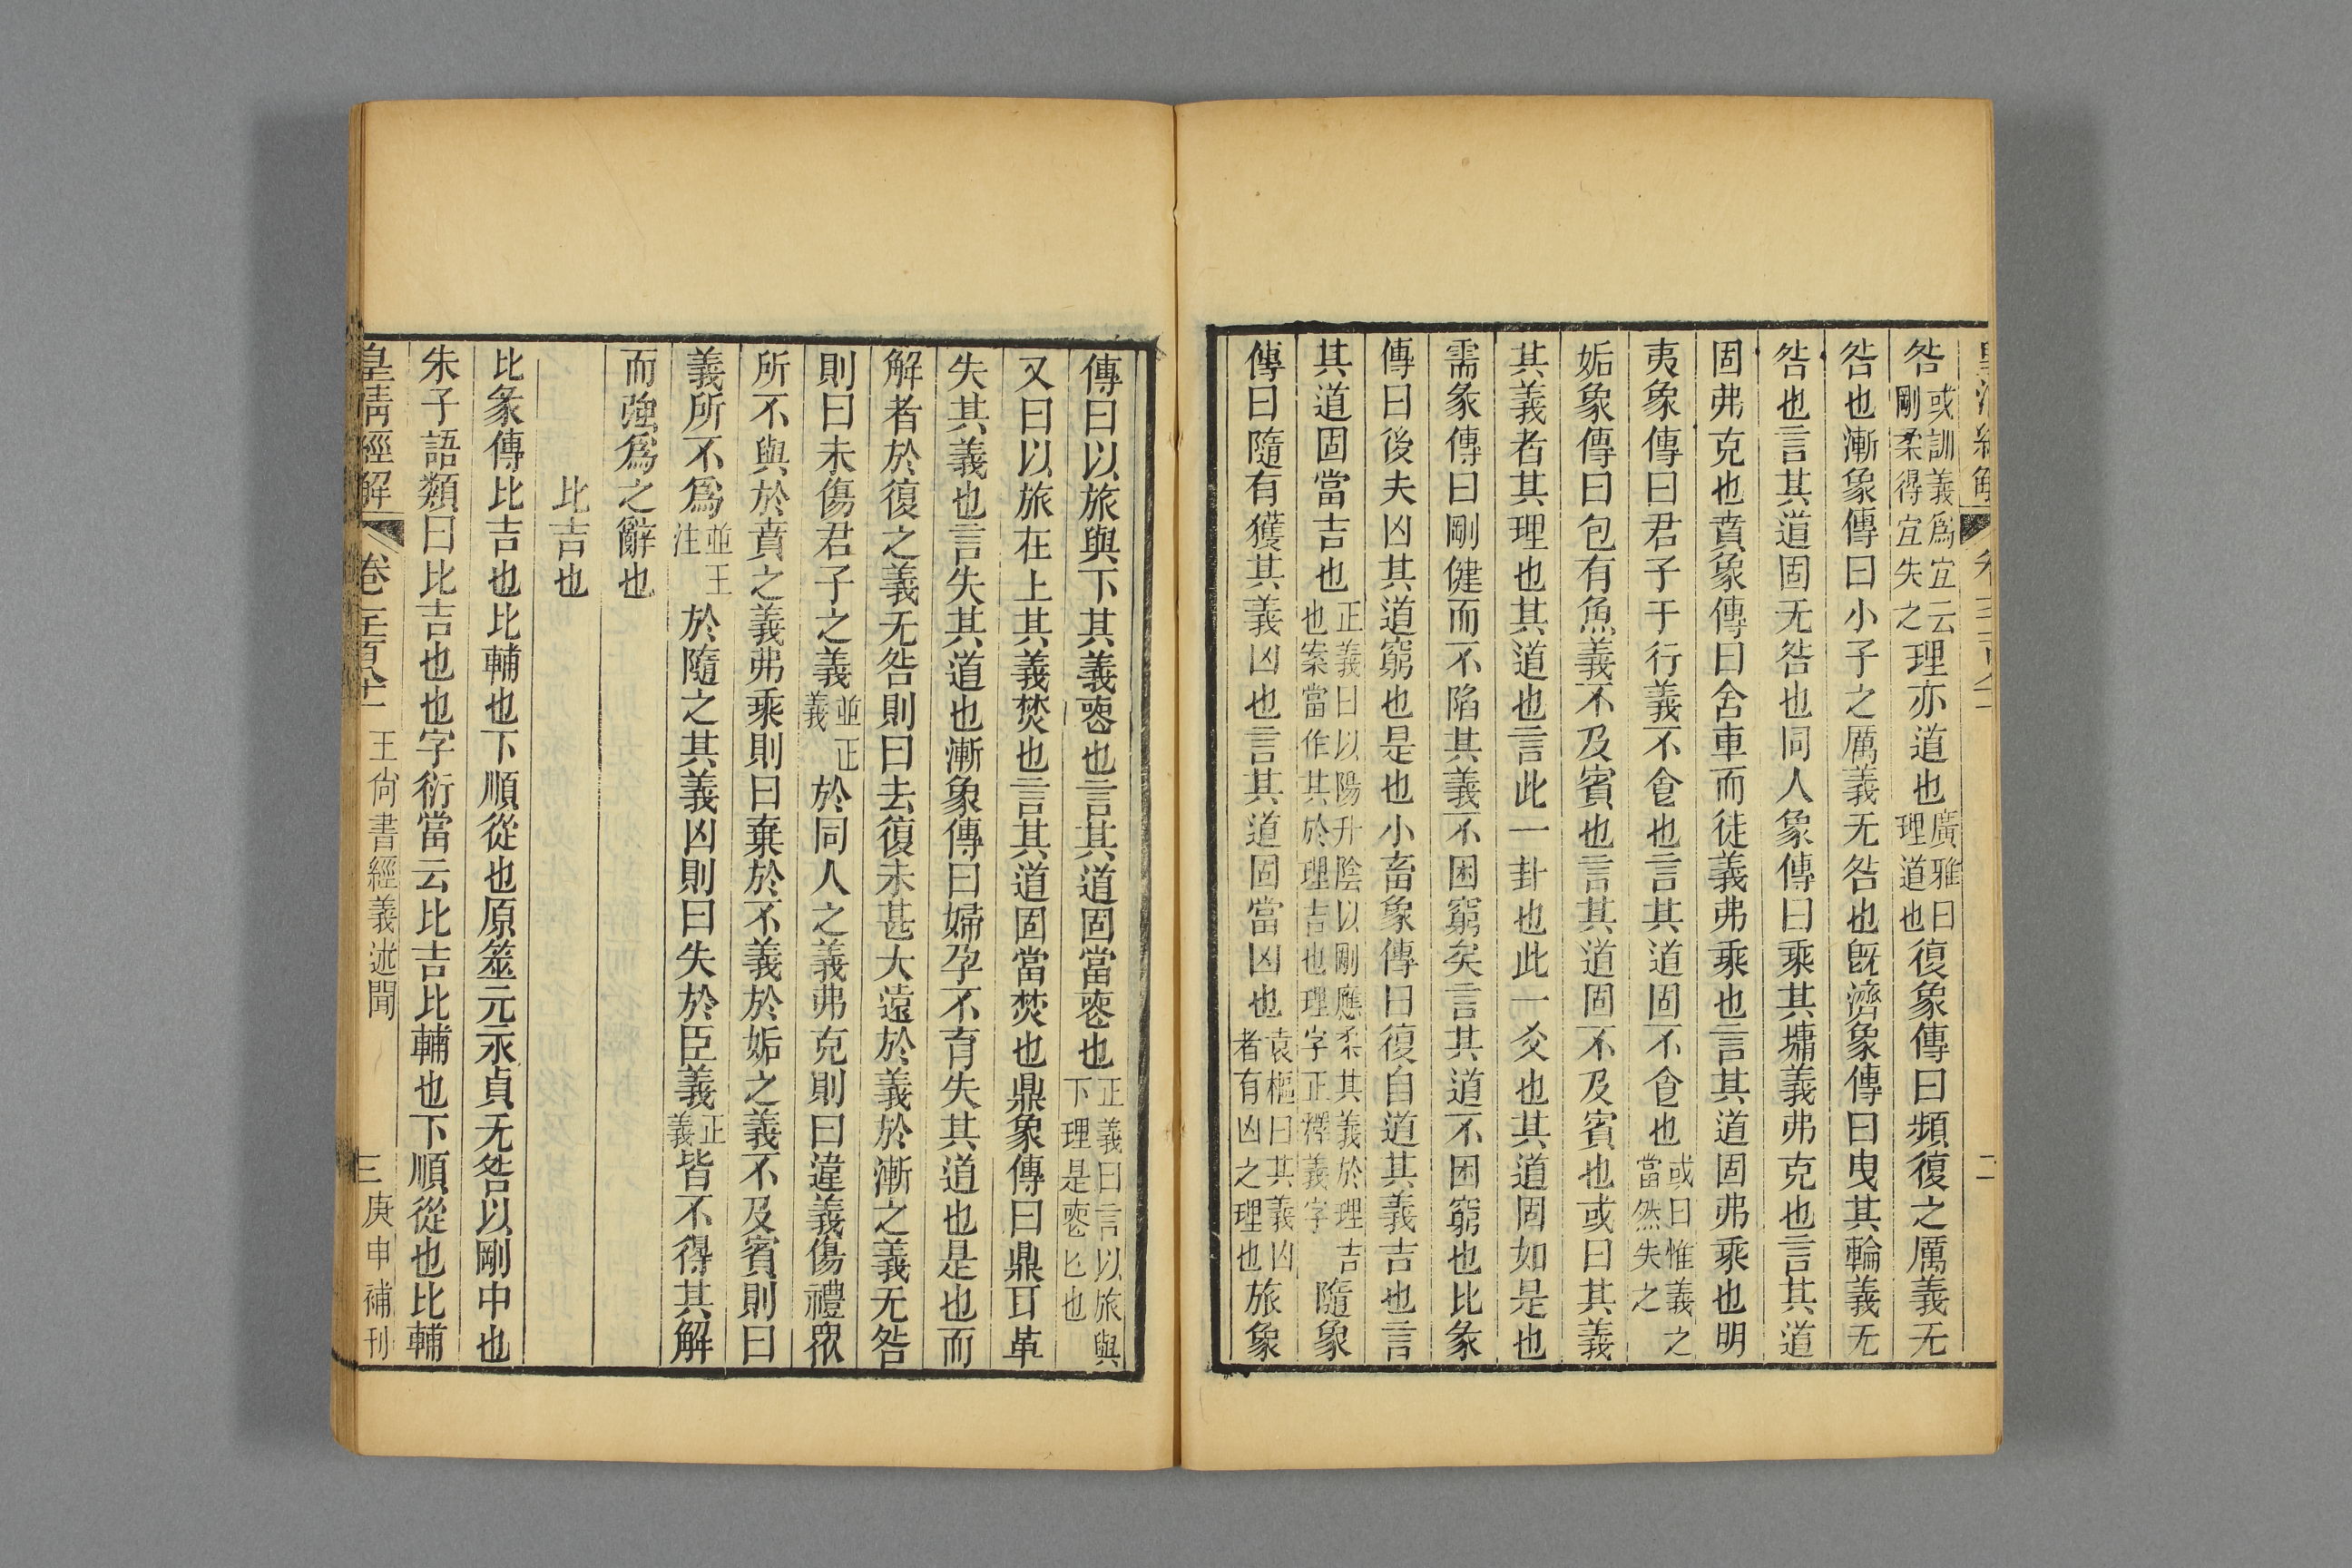 咎或訓義爲宜云剛柔得宜失之理亦道也廣雅曰理道也復象傳曰頻復之厲義无
咎也漸象傳曰小子之厲義无咎也旣濟象傳曰曳其輪義无
咎也言其道固无咎也同人象傳曰乘其墉義弗克也言其道
固弗克也賁象傳曰舍車而徒義弗乘也言其道固弗乘也明
夷象傳曰君子于行義不食也言其道固不食也或曰惟義之當然失之
姤象傳曰包有魚義不及賓也言其道固不及賓也或曰其義
其義者其理也其道也言此一卦也此一爻也其道固如是也
需彖傳曰剛健而不陷其義不困窮矣言其道不困窮也比彖
傳曰後夫凶其道窮也是也小畜象傳曰復自道其義吉也言
其道固當吉也正義曰以陽升陰以剛應柔其義於理吉也案當作其於理吉也理字正釋義字隨象
傳曰隨有獲其義凶也言其道固當凶也袁樞曰其義凶者有凶之理也旅象
傳曰以旅與下其義喪也言其道固當喪也正義曰言以旅與下理是喪亡也
又曰以旅在上其義焚也言其道固當焚也鼎象傳曰鼎耳革
失其義也言失其道也漸象傳曰婦孕不育失其道也是也而
解者於復之義无咎則曰去復未甚大遠於義於漸之義无咎
則曰未傷君子之義並正義於同人之義弗克則曰違義傷禮眾
所不與於賁之義弗乘則曰棄於不義於姤之義不及賓則曰
義所不爲並王注於隨之其義凶則曰失於臣義正義皆不得其解
而強爲之辭也
比吉也
比彖傳比吉也比輔也下順從也原筮元永貞无咎以剛中也
朱子語類曰比吉也也字衍當云比吉比輔也下順從也比輔
皇清經解 卷 王尙書經義述聞 三 庚申補刊